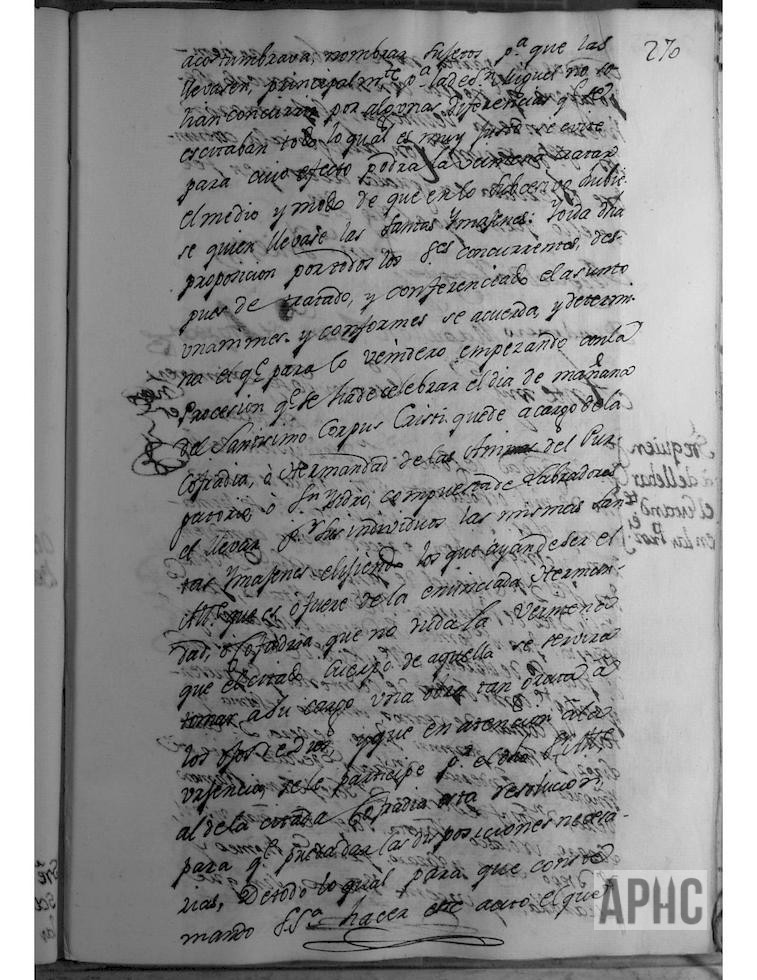 270
acostumbrava nombrar sujetos p.a que las
llevasen, principalm.te p.a la de S.n Miguel no so
lian concurrir por algunas diferencias q.e se
escitaban todo lo qual es muy justo se evite
para cuio efecto podra la tratar
el medio y modo de que en lo subcesivo hubie
se quien llevase las Santas Ymagenes: Yoida dha
proposicion por todos los S.res concurrentes, des
pues de tratado, y conferenciado el asunto
unanimes y conformes se acuerda, y determi
na el q.e para lo veindero empezando con la
Procesion q.e se ha de celebrar el dia de mañana
del Santisimo Corpus Cristi quede a cargo de la
Cofradia, ò Hermandad de las Animas del Pur
gatorio, ò S.n Ysidro, compuesta de Labradores
el llevar p.r sus individuos las mismas San
tas Ymagenes elijiendo los que ayan de ser el
Alc.e que es ò fuere de la enunciada Herman
dad, ò Cofradia, que no duda la
que el citado Cuerpo de aquella se servirá
tomar a su cargo una obra tan grata à
los ojos de Dios, y que en atencion à la
urjencia, se le participe p.a el
al de la citada Cofradia esta resolucion,
para q.e pueda dar las disposiciones necesa
rias, De todo lo qual para que conste
mando S.Sª. hacer este auto el que
Sre quien
à de llebar
el Guiand.te
en las Proz.s
APHC